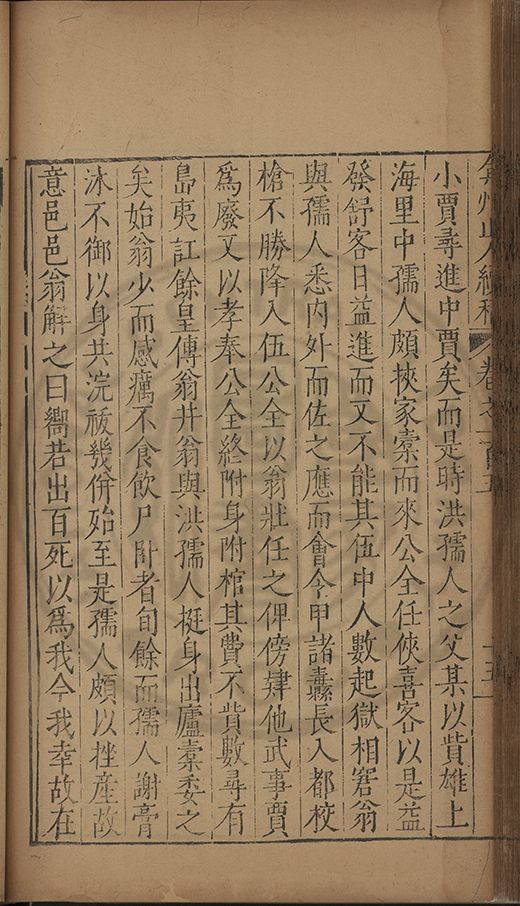 弇州山人續稿 卷之一百五 十五
小賈尋進中賈矣而是時洪孺人之父某以貲雄上
海里中孺人頗挾家橐而來公全任俠喜客以是益
發舒客日益進而又不能其伍中人數起獄相窘翁
與孺人悉內外而佐之應而會令甲諸纛長入都校
槍不勝降入伍公全以翁壯任之俾傍肄他武事賈
爲廢又以孝奉公全終附身附棺其費不貲數尋有
島夷訌餘皇傳翁井翁與洪孺人挺身出廬橐委之
矣始翁少而感癘不食飲尸臥者旬餘而孺人謝膏
沐不御以身共浣祓幾倂殆至是孺人頗以挫產故
意邑邑翁解之曰嚮若出百死以爲我今我幸故在